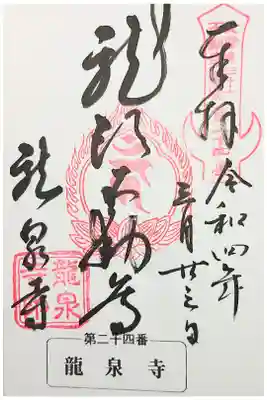 奉拝
令和四年
三月廿三日
龍頭不動尊
龍泉寺
龍泉寺
第二十四番
龍泉寺